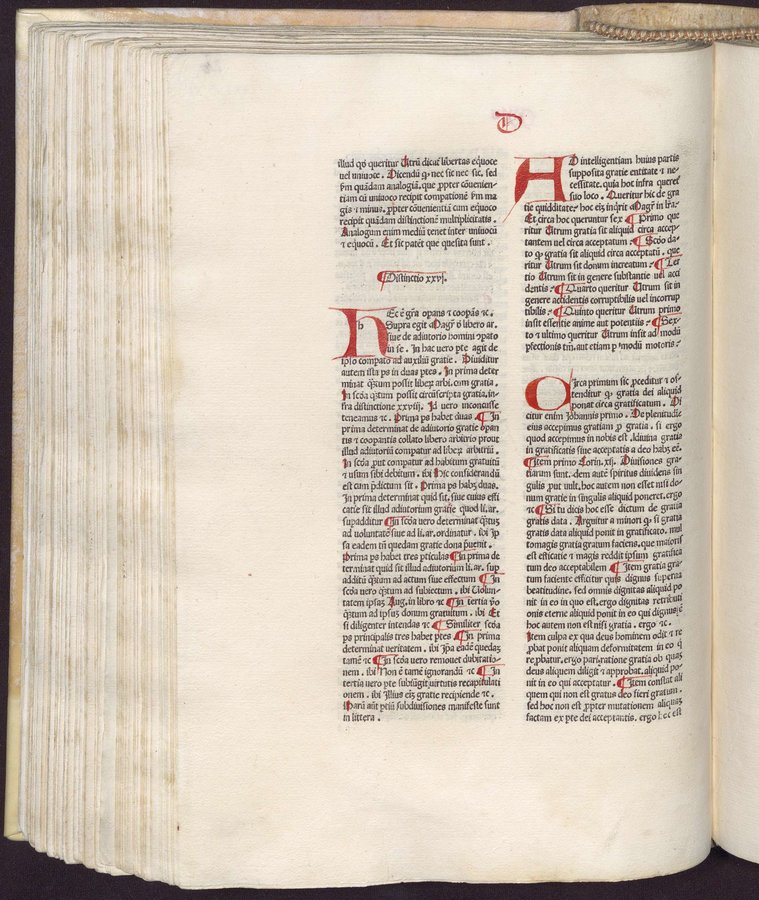 D
illud qd queritur Utrū dicat̄ libertas eqiuoce
uel uniuoce . Dicendū ꝙ nec sic nec sic. sed
ẜm quādam analogiā. que ꝓpter cōuenien-
tiam cū uniuoco recipit compationē ẜm ma
gis ⁊ minus. ꝓpter cōuenientiā cum equoco
recipit quādam distinctionē multiplicitatis .
Analogum enim mediū tenet inter uniuocū
⁊ equocū . Et sic patēt que quesita sunt .
Distinctio xxvj.
HEc ē gr̄a opans ⁊ coopās ⁊c .
Supra egit Magr̄ ō libero ar.
siue de adiutorio homini ꝓpato
in se . In hac uero pte agit de
ipso compato ad auxiliū gratie . Diuiditur
autem ista ps in duas ptes . In prima deter
minat qd̄tum possit liber arbi. cum gratia.
In scd̄a qd̄tum possit circūscripta gratia. in-
fra distinctione xxviij. Id uero inconcusse
teneamus ⁊c . Prima ps habet duas In
prima determinat de adiutorio gratie opan
tis ⁊ coopantis collato libero arbitrio prout
illud adiutoriū compatur ad liberꝝ arbitriū .
In scd̄a ꝓut compatur ad habitum gratuitū
⁊ usum sibi debitum . ibi Hic considerandū
est cum p̄dictum sit . Prima ps habꝫ duas.
In prima determinat quid sit. siue cuius effi
catie sit illud adiutorium gratie quod li. ar.
supadditur In scd̄a vero determinat qd̄tuꝫ
ad uoluntatē siue ad li. ar. ordinatur . ibi Ip
sa eadem tn̄ quedam gratie dona p̄uenit .
Prima ps habet tres pticulas In prima de
terminat quid sit illud adiutorium li. ar. sup
additū qd̄tum ad actum siue effectum In
scd̄a uero qd̄tum ad subiectum . ibi Uolun-
tatem ipsaꝫ Aug. in libro ⁊c In tertia ꝟo
qd̄tum ad ipsuꝫ donum gratuitum . ibi Et
si diligenter intendas ⁊c Similiter scd̄a
ps principalis tres habet ptes In prima
determinat veritatem . ibi Ipa eadē quedaꝫ
tamē ⁊c In scd̄a uero remouet dubitatio-
nem . ibi Non ē tamē ignorandū ⁊c In
tertia uero pte subiūgit uirtutis recapitulati
onem . ibi Illius eiꝫ gratie recipiende ⁊c .
Harū aūt ptiū subdiuisiones manifeste sunt
in littera .
AD intelligentiam huius partis
supposita gratie entitate ⁊ ne-
cessitate . quia hoc infra querek̄
suo loco . Queritur hic de gra
tie quidditate : hoc eiꝫ inq̄rit Magr̄ in lr̄a.
Et circa hoc queruntur sex Primo que
ritur Utrum gratia sit aliquid circa accep-
tantem uel circa acceptatum : Scd̄o da-
to ꝙ gratia sit aliquid circa acceptatū . que
ritur Utrum sit donum increatum : Ter
tio Utrum sit in genere substantie uel acci
dentis : Quarto queritur Utrum sit in
genere accidentis corruptibilis uel incorrup
tibilis : Quinto queritur Utrum primo
insit essentie anime aut potentiis : Sex-
to ⁊ ultimo queritur Utrum insit ad modū
pfectionis tm̄. aut etiam p modū motoris :
CIrca primum sic ꝓceditur ⁊ os-
tenditur ꝙ gratia dei aliquid
ponat circa gratificatum . Di
citur enim Johannis primo . De plenitudie
eius accepimus gratiam ꝓ gratia . si ergo
quod accepimus in nobis est . diuina gratia
in gratificatis siue acceptatis a deo habꝫ eē.
Item primo Corin. xij. Diuisiones gra-
tiarum sunt . dem autē spiritus diuidens sin
gulis put uult . hoc autem non esset nisi do-
num gratie in singulis aliquid poneret. ergo
⁊c Si tu dicis hoc esse dictum de gratia
gratis data . Arguitur a minori ꝙ si gratia
gratis data aliquid ponit in gratificato . mul
tomagis gratia gratum faciens. que maioris
est efficatie ⁊ magis reddit ipsum gratifica
tum deo acceptabilem Item gratia gra-
tum faciente efficitur quis dignus superna
beatitudine. sed omnis dignitas aliquid po
nit in eo in quo est. ergo dignitas retributi
onis eterne aliquid ponit in eo qui dignus ē
hoc autem non est nisi gratia . ergo ⁊c .
Item culpa ex qua deus hominem odit ⁊ re
ꝓbat ponit aliquam deformitatem in eo q̄
reꝓbatur. ergo pari ratione gratia ob quaꝫ
deus aliquem diligit ⁊ approbat. aliquid po-
nit in eo qui acceptatur . Item constat ali
quem qui non est gratus deo fieri gratum.
sed hoc non est ꝓpter mutationem aliquaꝫ
factam ex pte dei acceptantis. ergo hec est